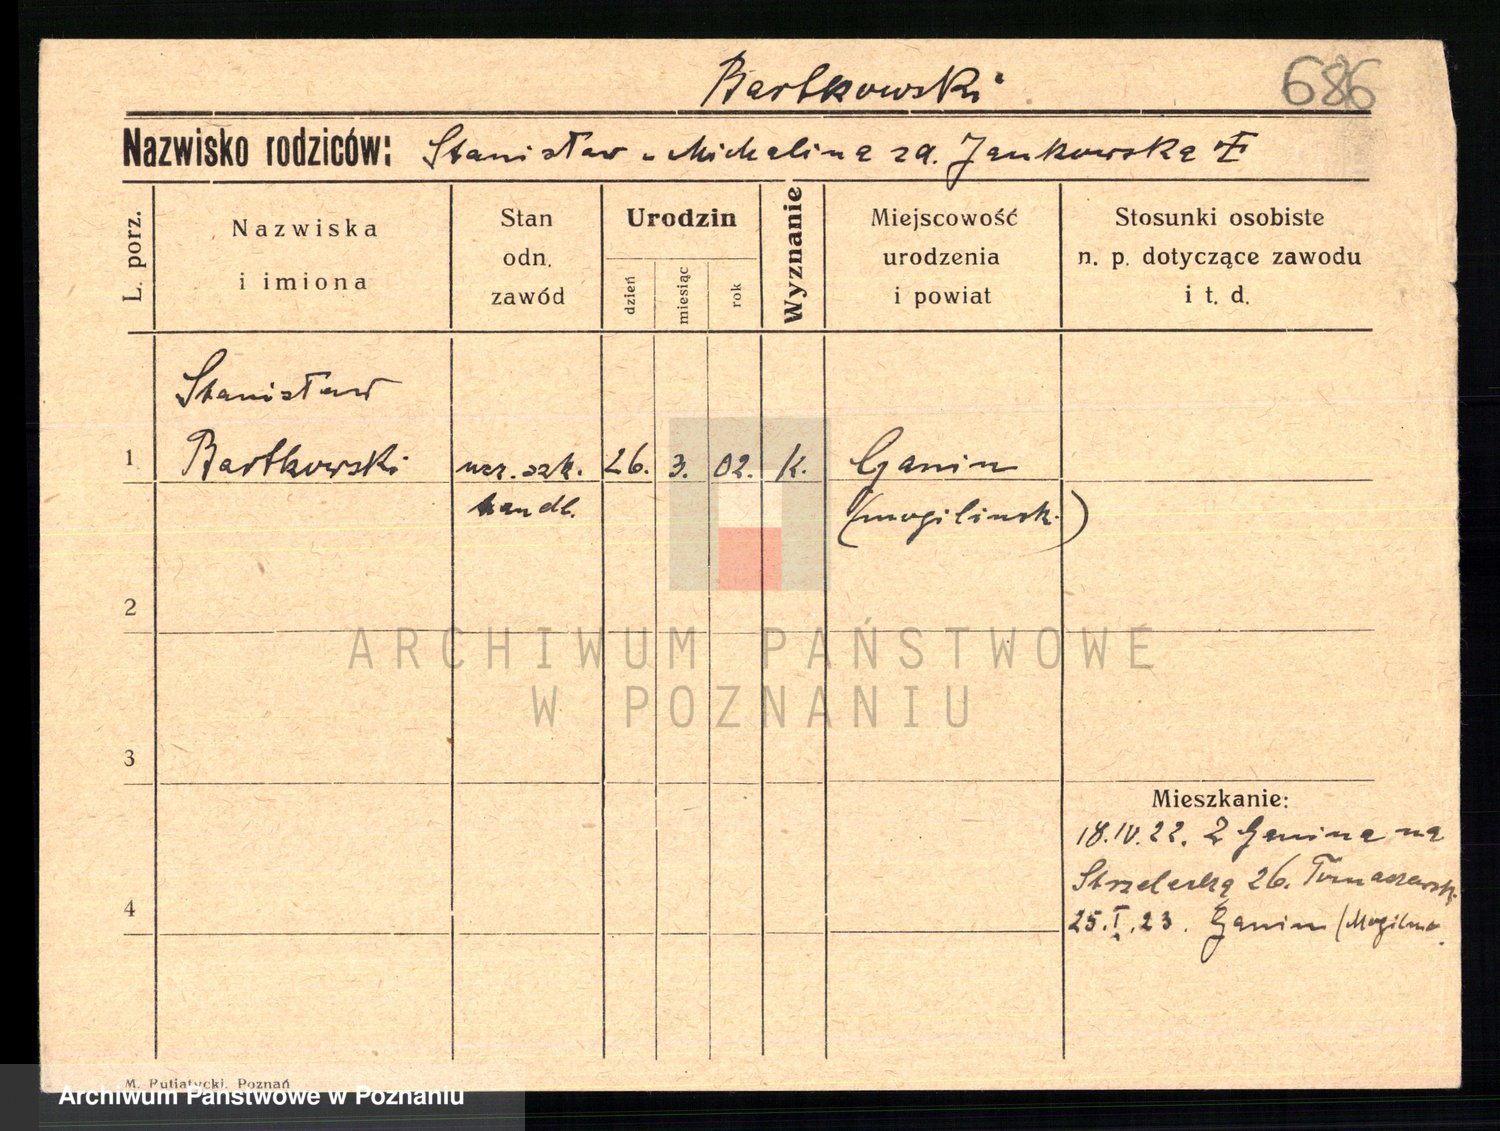 Bartkowski
686
Nazwisko rodziców: Stanisław u Michalina zd. Jankowska
L. porz.
Nazwiska
i imiona
Stan
odn.
zawód
Urodzin
dzień
miesiąc
rok
Wyznanie
Miejscowość
urodzenia
i powiat
Stosunki osobiste
n. p. dotyczące zawodu
i t. d.
Stanisław
1 Bartkowski ucz. szk. 26. 3. 02. k. Ganin
handl. (mogilinsk.)
2
ARCHIWUM PAŃSTWOWE
W POZNANIU
3
Mieszkanie:
18.IV.22. Z Ganina na
Strzelecką 26. Tomaszewsk.
4 25.I.23. Ganin (Mogilno.
M. Putiatycki, Poznań
Archiwum Państwowe w Poznaniu